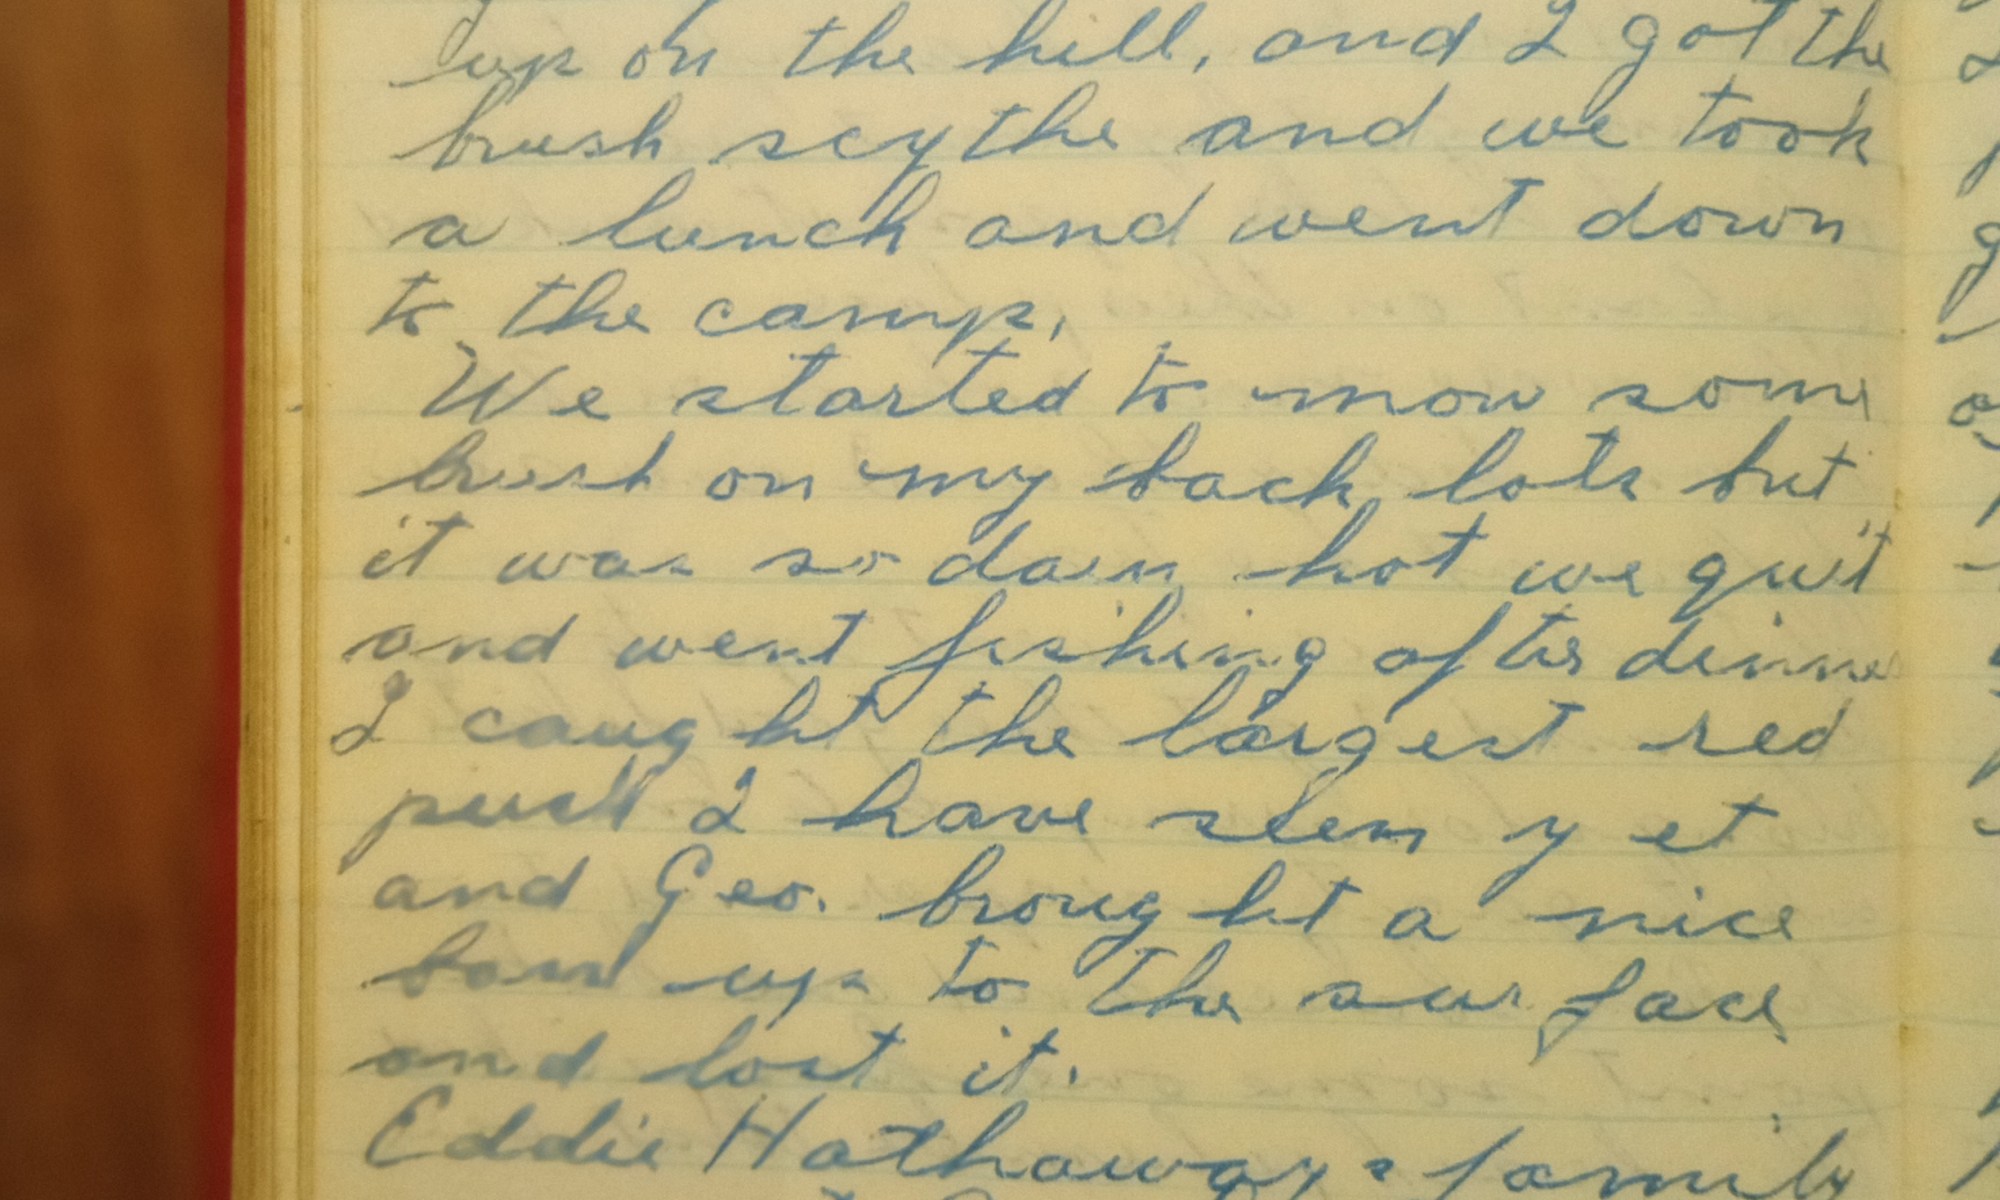 up on the hill, and I got the
brush scythe and we took
a lunch and went down
to the camp.
We started to mow some
brush on my back lots but
it was so damn hot we quit
and went fishing after dinner
I caught the largest red
perch I have seen yet
and Geo. brought a nice
bass up to the surface
and lost it.
Eddie Hathaway & family